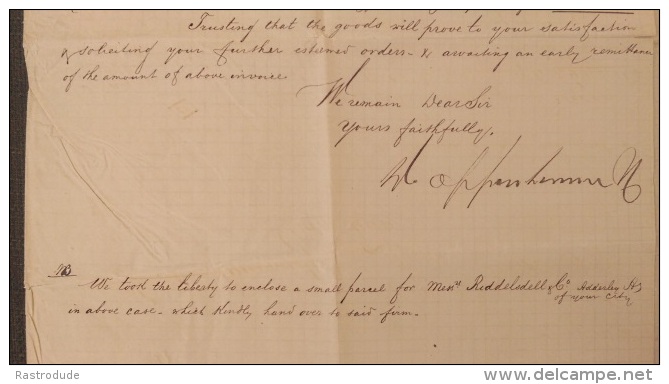 Trusting that the goods will prove to your satisfaction
& soliciting your further estemed orders - & awaiting an early remittance
of the amount of above invoice
We remain Dear Sir
Yours faithfully.
Oppenheimer
NB
We took the liberty to enclose a small parcel for Messrs Riddelsdell & Co Adderley St
of your City
in above case - which kindly hand over to said firm -
Rastrodude
www.delcampe.net